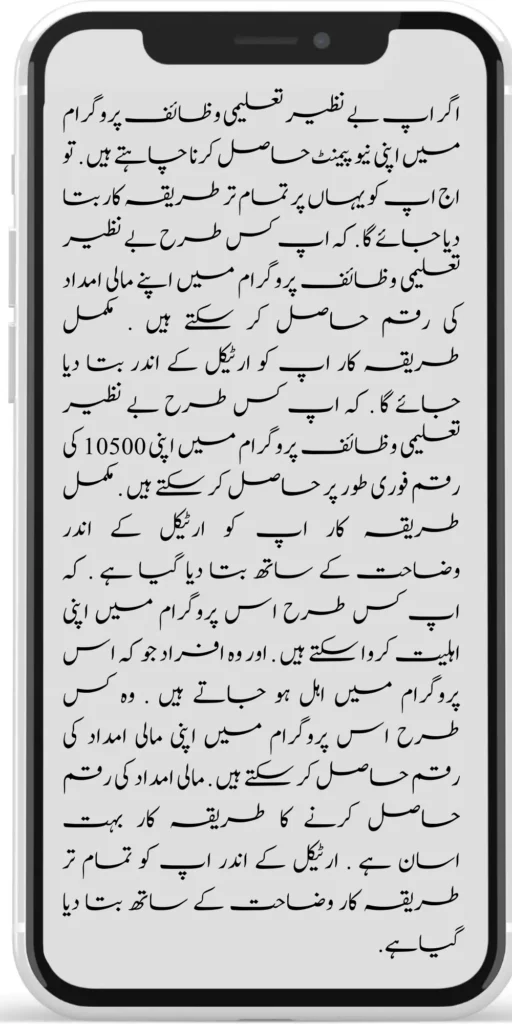 اگر اپ بے نظیر تعلیمی وظائف پروگرام
میں اپنی نیو پیمنٹ حاصل کرنا چاہتے ہیں . تو
اج اپ کو یہاں پر تمام تر طریقہ کار بتا
دیا جائے گا . کہ اپ کس طرح بے نظیر
تعلیمی وظائف پروگرام میں اپنے مالی امداد
کی رقم حاصل کر سکتے ہیں . مکمل
طریقہ کار اپ کو ارٹیکل کے اندر بتا دیا
جائے گا . کہ اپ کس طرح بے نظیر
تعلیمی وظائف پروگرام میں اپنی 10500 کی
رقم فوری طور پر حاصل کر سکتے ہیں . مکمل
طریقہ کار اپ کو ارٹیکل کے اندر
وضاحت کے ساتھ بتا دیا گیا ہے . کہ
اپ کس طرح اس پروگرام میں اپنی
اہلیت کروا سکتے ہیں . اور وہ افراد جو کہ اس
پروگرام میں اہل ہو جاتے ہیں . وہ کس
طرح اس پروگرام میں اپنی مالی امداد کی
رقم حاصل کر سکتے ہیں . مالی امداد کی رقم
حاصل کرنے کا طریقہ کار بہت
اسان ہے . ارٹیکل کے اندر اپ کو تمام تر
طریقہ کار وضاحت کے ساتھ بتا دیا
گیا ہے .